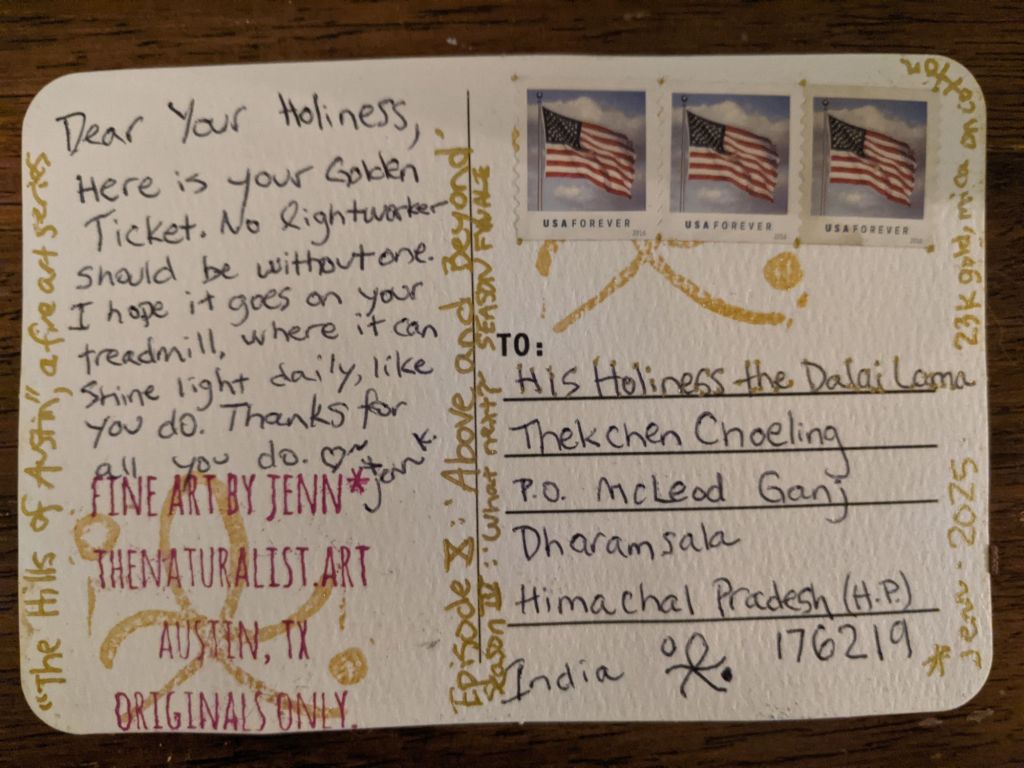 Dear Your Holiness,
Here is your Golden
Ticket. No lightworker
should be without one.
I hope it goes on your
treadmill, where it can
shine light daily, like
you do. Thanks for
all you do. ♡~
*Jenn K.
FINE ART BY JENN*
THENATURALIST.ART
AUSTIN, TX
ORIGINALS ONLY.
"The Hills of Austin", a fine art series
Episode X: 'Above and Beyond.'
Season IV: 'What Next?' SEASON FINALE
USA FOREVER
2016
USA FOREVER
2016
USA FOREVER
TO:
His Holiness the Dalai Lama
Thekchen Choeling
P.O. McLeod Ganj
Dharamsala
Himachal Pradesh (H.P.)
India 176219
* Jenn - 2025 23K gold, mica on cotton